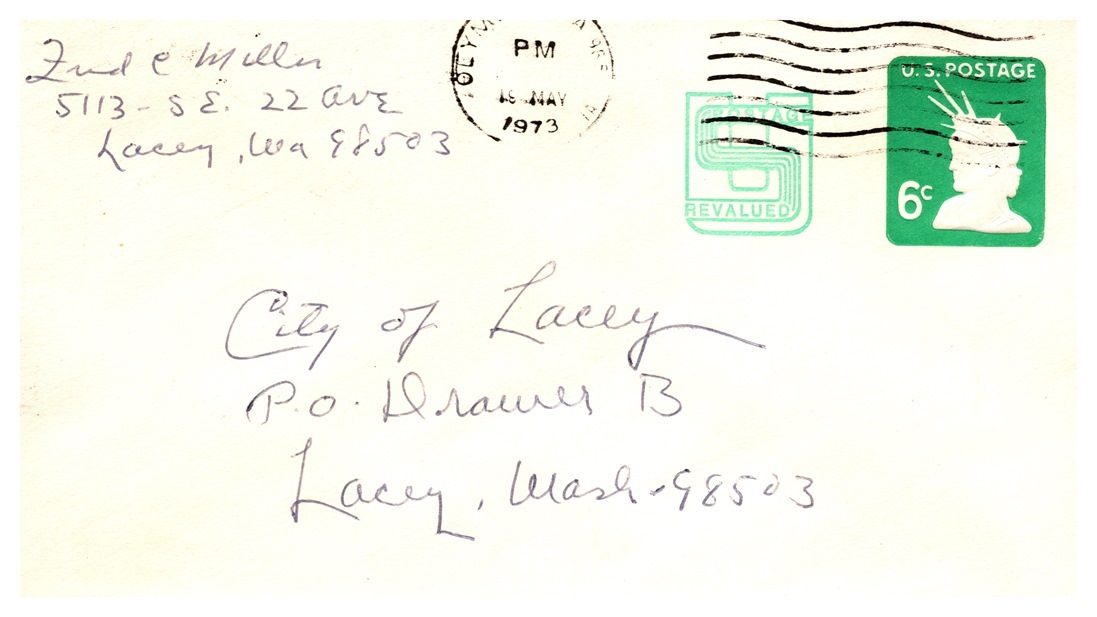 Fred C Miller
5113 - S E. 22 ave
Lacey, Wa 98503
OLYM
PM
MAY
1973
U.S. POSTAGE
6c
POSTAGE
REVALUED
City of Lacey
P.O. Drawer B
Lacey, Wash-98503